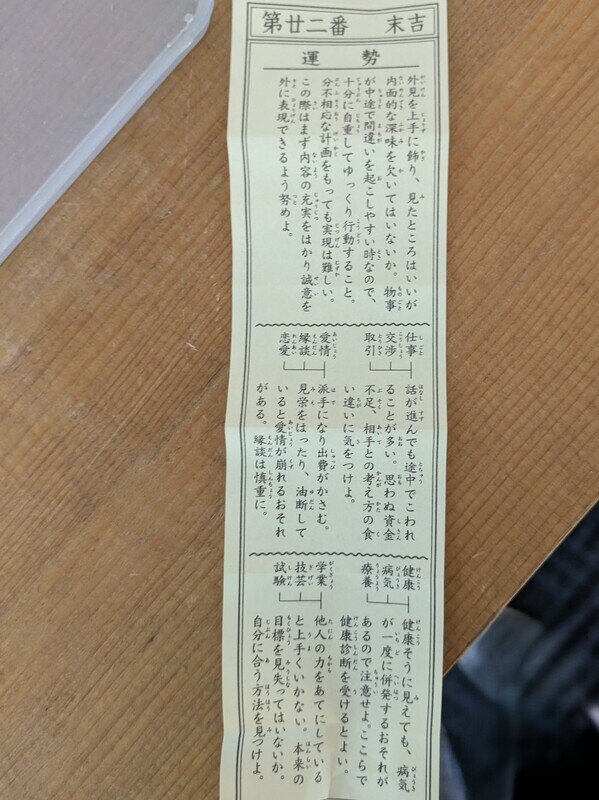 第廿二番 末吉
運勢
外見を上手に飾り、見たところはいいが
内面的な深味を欠いてはいないか。物事
が中途で間違いを起こしやすい時なので、
十分に自重してゆっくり行動すること。
分不相応な計画をもっても実現は難しい。
この際はまず内容の充実をはかり誠意を
外に表現できるよう努めよ。
仕事
交渉
取引
話が進んでも途中でこわれ
ることが多い。思わぬ資金
不足、相手との考え方の食
い違いに気をつけよ。
愛情
縁談
恋愛
派手になり出費がかさむ。
見栄をはったり、油断して
いると愛情が崩れるおそれ
がある。縁談は慎重に。
健康
病気
療養
健康そうに見えても、病気
が一度に併発するおそれが
あるので注意せよ。ここらで
健康診断を受けるとよい。
学業
技芸
試験
他人の力をあてにしている
と上手くいかない。本来の
目標を見失ってはいないか。
自分に合う方法を見つけよ。